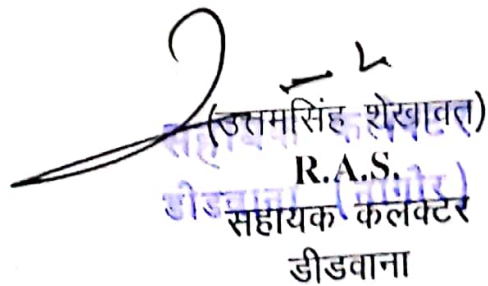 (उत्तमसिंह शेखावत)
R.A.S.
सहायक कलक्टर
डीडवाना (नागौर)
सहायक कलक्टर
डीडवाना